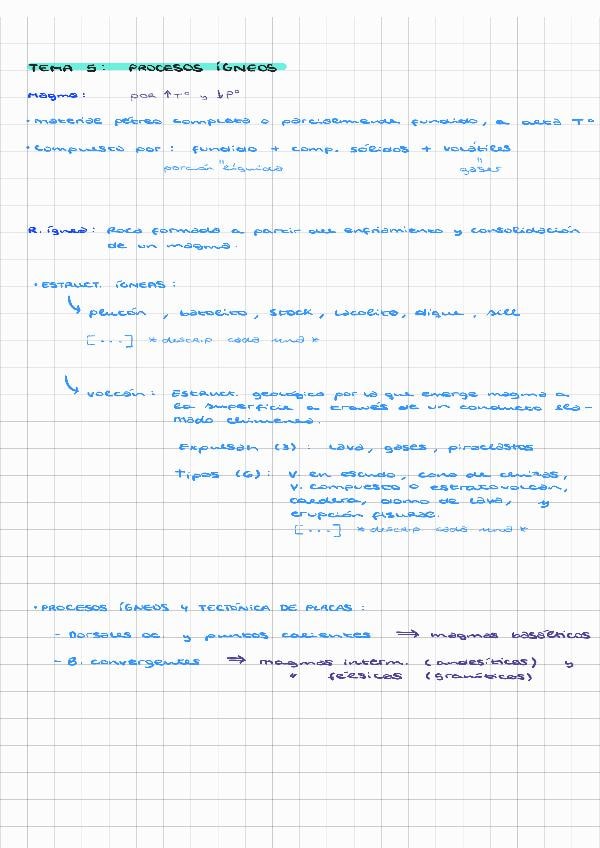 TEMA 5: PROCESOS ÍGNEOS
Magma: por ↑Tº y ↓Pº
· material pétreo completa o parcialmente fundido, a alta Tº
· Compuesto por: fundido + comp. sólidos + volátiles
porción líquida gases
R. ígnea: Roca formada a partir del enfriamiento y consolidación
de un magma.
· ESTRUCT. ÍGNEAS:
plutón, batolito, stock, lacolito, dique, sill
[...] *descrip cada una*
volcán: Estruct. geológica por la que emerge magma a
la superficie a través de un conducto lla-
mado chimenea.
Expulsan (3): lava, gases, piroclastos
Tipos (6): V. en escudo, cono de cenizas,
V. compuesto o estratovolcán,
caldera, domo de lava, y
erupción fisural.
[...] *descrip cada una*
· PROCESOS ÍGNEOS Y TECTÓNICA DE PLACAS:
- Dorsales oc y puntos calientes ⇒ magmas basálticos
- B. convergentes ⇒ magmas interm. (andesíticos) y
" félsicos (graníticos)